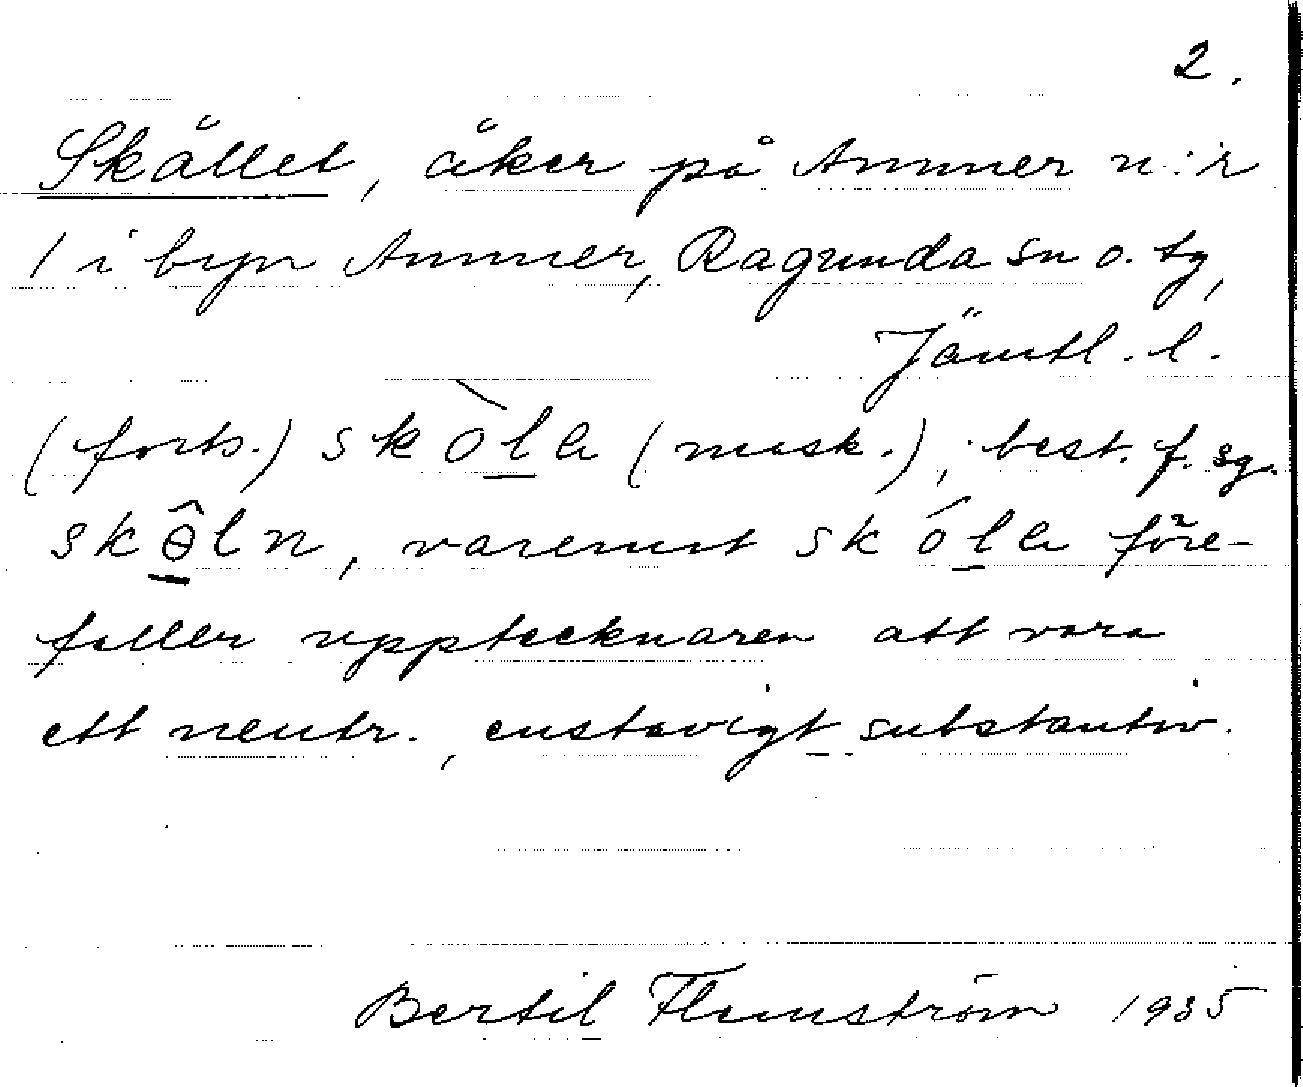 2.
Skållet, åker på Ammer n:r
1 i byn Ammer, Ragunda sn o. tg,
Jämtl. l.
(forts.) skòla (mask.), best. f. sg.
skɵ̂ln, varemot skóla före-
faller upptecknaren att vara
ett neutr., enstavigt substantiv.
Bertil Flemström 1935